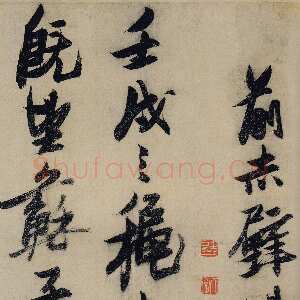 前赤壁
壬戌之秋
既望蘇子
shufawang.cn